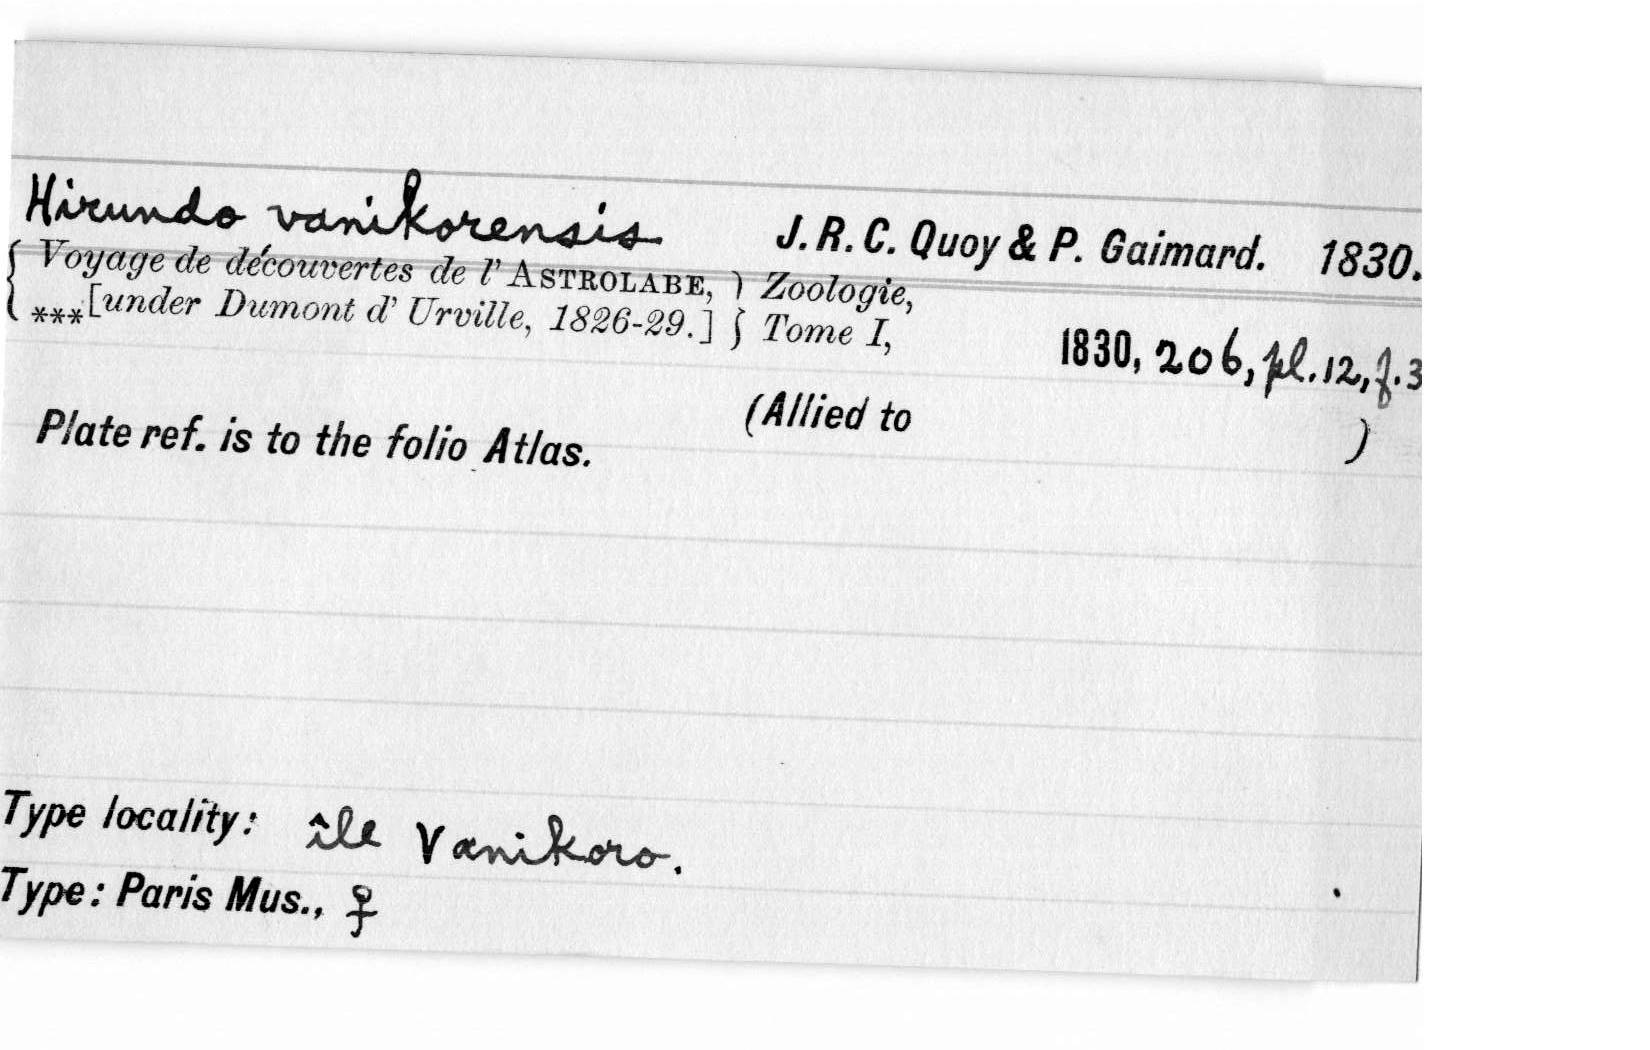 Hirundo vanikorensis J. R. C. Quoy & P. Gaimard. 1830.
{ Voyage de découvertes de l' ASTROLABE, } Zoologie,
{ ***[under Dumont d' Urville, 1826-29.] } Tome I,
1830, 206, pl. 12, f. 3
(Allied to )
Plate ref. is to the folio Atlas.
Type locality: île Vanikoro.
Type: Paris Mus., ♀